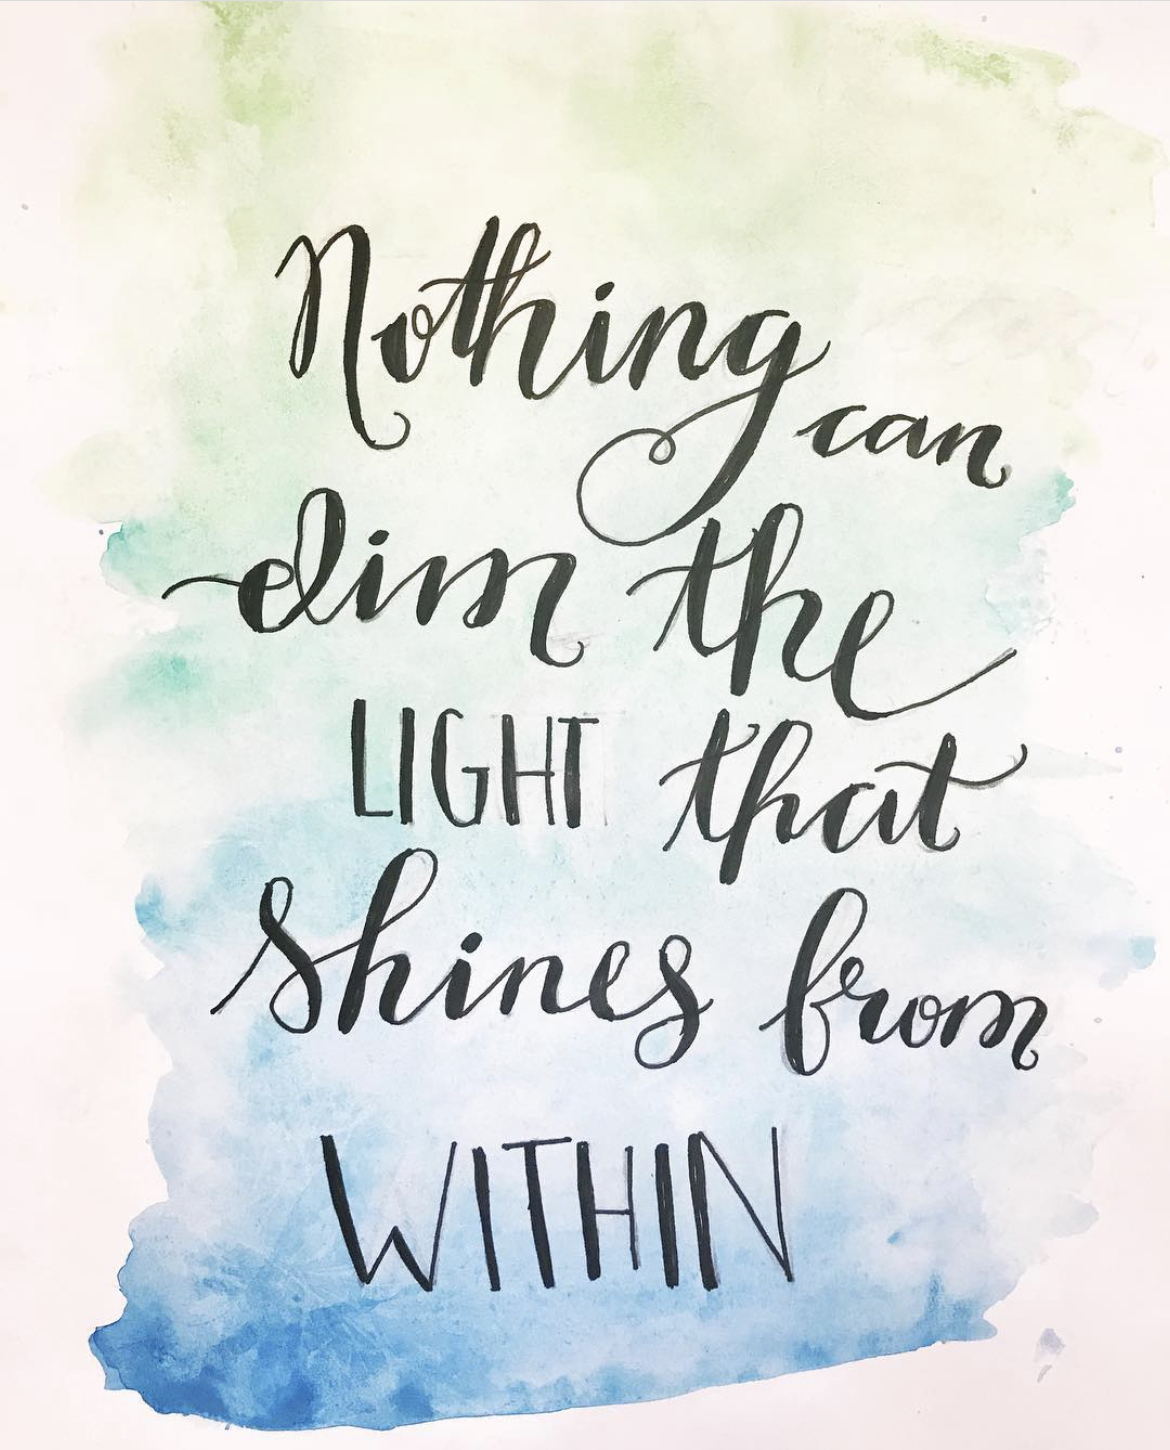 Nothing can
dim the
LIGHT that
shines from
WITHIN